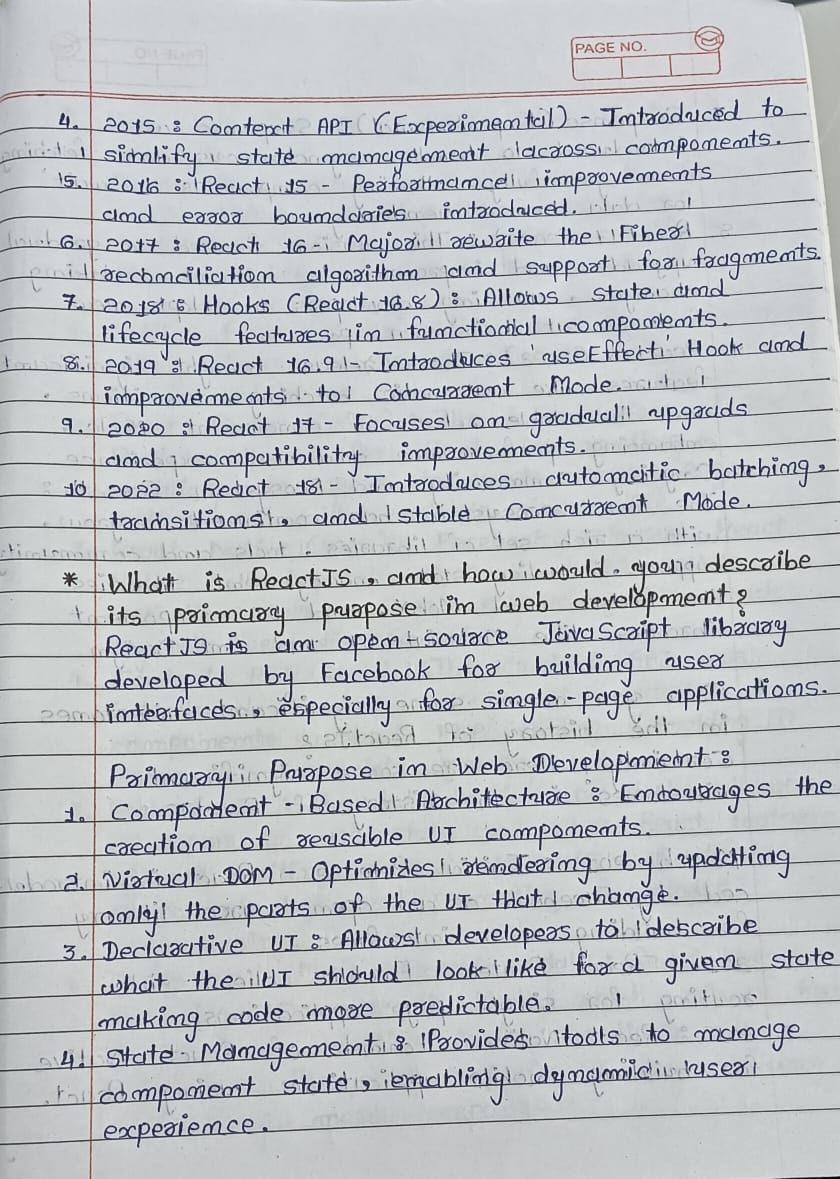 PAGE NO.
4. 2015 : Context API (Experimental) - Introduced to
simlify state management across components.
5. 2016 : React 15 - Performance improvements
and error boundaries introduced.
6. 2017 : React 16 - Major rewrite the Fiber
reconciliation algorithm and support for fragments.
7. 2018 : Hooks (React 16.8) : Allows state and
lifecycle features in functional components.
8. 2019 : React 16.9 - Introduces 'useEffect' Hook and
improvements to Concurrent Mode.
9. 2020 : React 17 - Focuses on gradual upgrads
and compatibility improvements.
10 2022 : React 18 - Introduces automatic batching,
transitions, and stable Concurrent Mode.
* What is ReactJS, and how would you describe
its primary purpose in web development?
ReactJS is an open-source JavaScript library
developed by Facebook for building user
interfaces, especially for single-page applications.
Primary Purpose in Web Development :
1. Component - Based Architecture : Encourages the
creation of reusable UI components.
2. Virtual DOM - Optimizes rendering by updating
only the parts of the UI that change.
3. Declarative UI : Allows developers to describe
what the UI should look like for a given state
making code more predictable.
4. State Management : Provides tools to manage
component state, enabling dynamic user
experience.